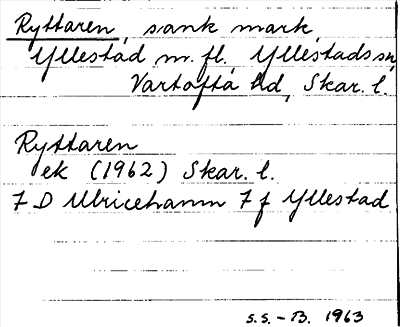 Ryttaren, sank mark,
Yllestad m. fl. Yllestads sn,
Vartofta hd, Skar. l.
Ryttaren
ek (1962) Skar. l.
7 D Ulricehamn 7 f Yllestad
S.S. - B. 1963